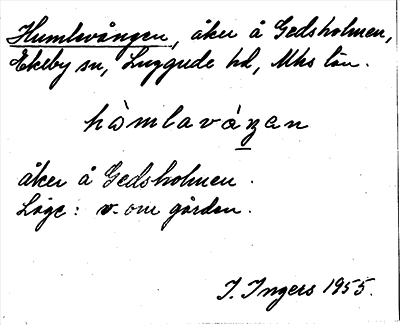 Humlevången, åker å Gedsholmen,
Ekeby sn, Luggude hd, Mhs län.
hòmlavápan
åker å Gedsholmen.
Läge: v. om gården.
I. Ingers 1955.